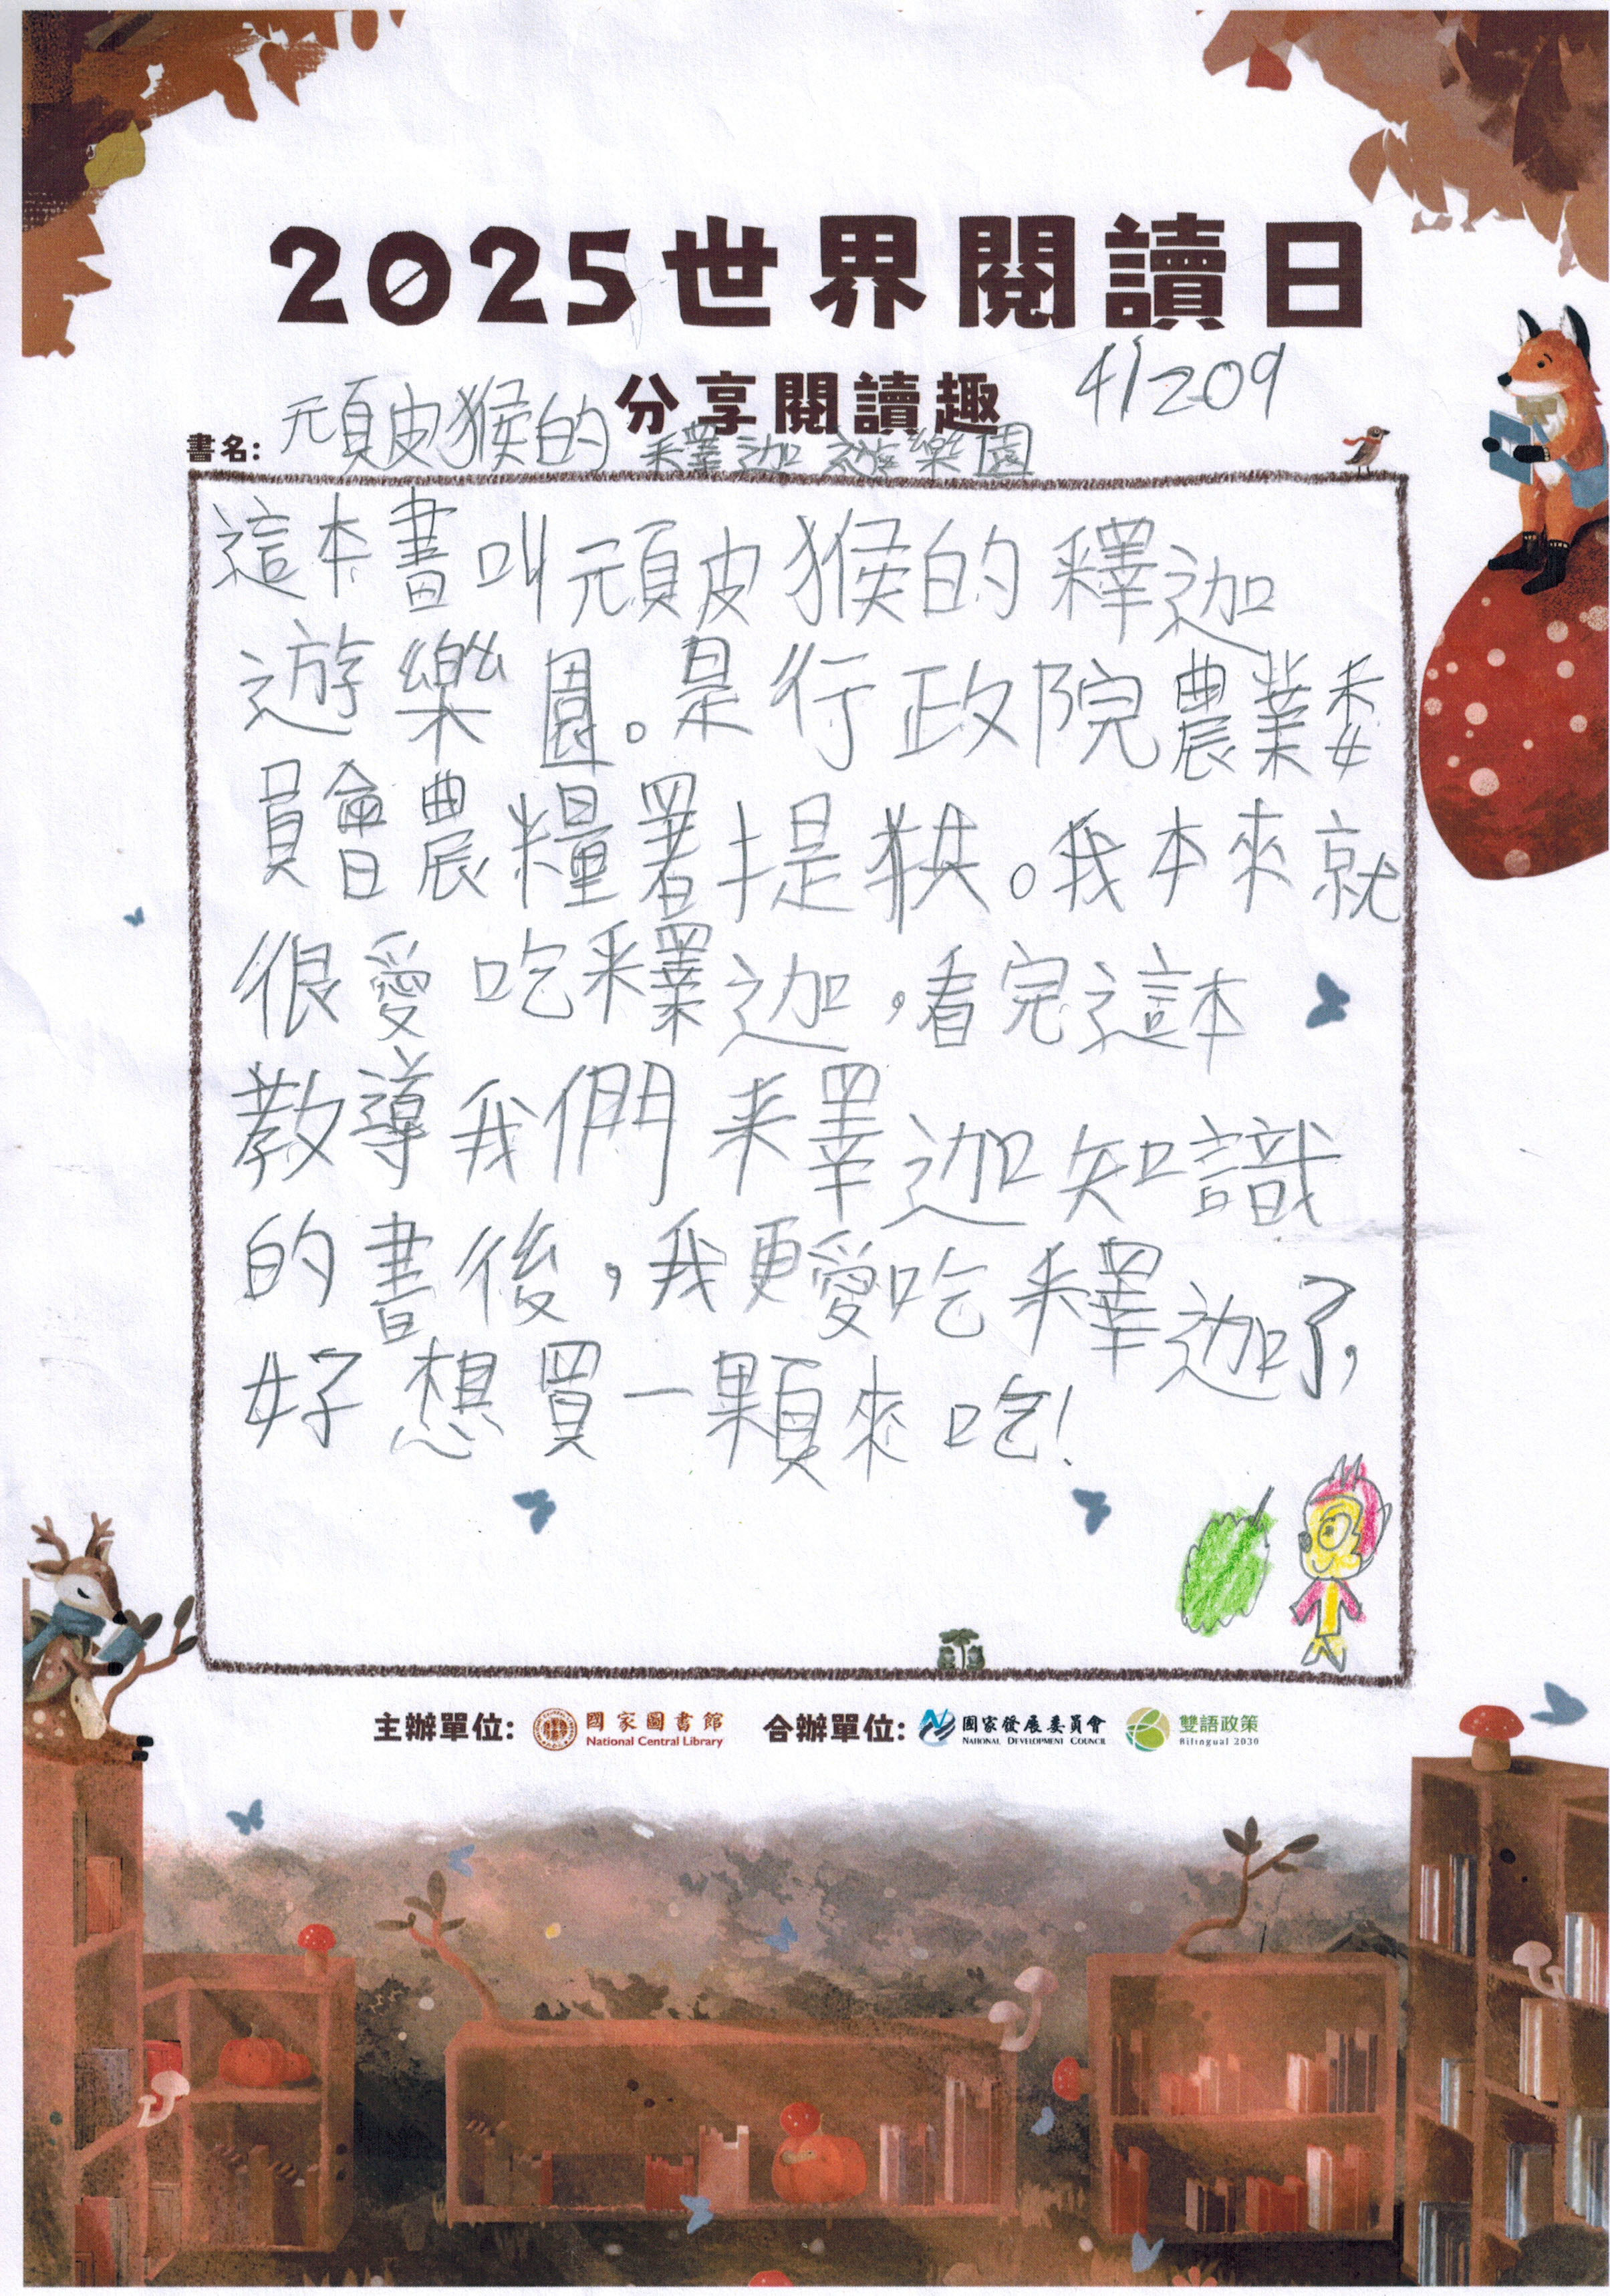 2025世界閱讀日
分享閱讀趣
41209
書名: 頑皮猴的釋迦遊樂園
這本書叫頑皮猴的釋迦
遊樂園。是行政院農業委
員會農糧署提供。我本來就
很愛吃釋迦,看完這本
教導我們釋迦知識
的書後,我更愛吃釋迦了,
好想買一顆來吃!
主辦單位: 國家圖書館 National Central Library 合辦單位: 國家發展委員會 National Development Council 雙語政策 Bilingual 2030